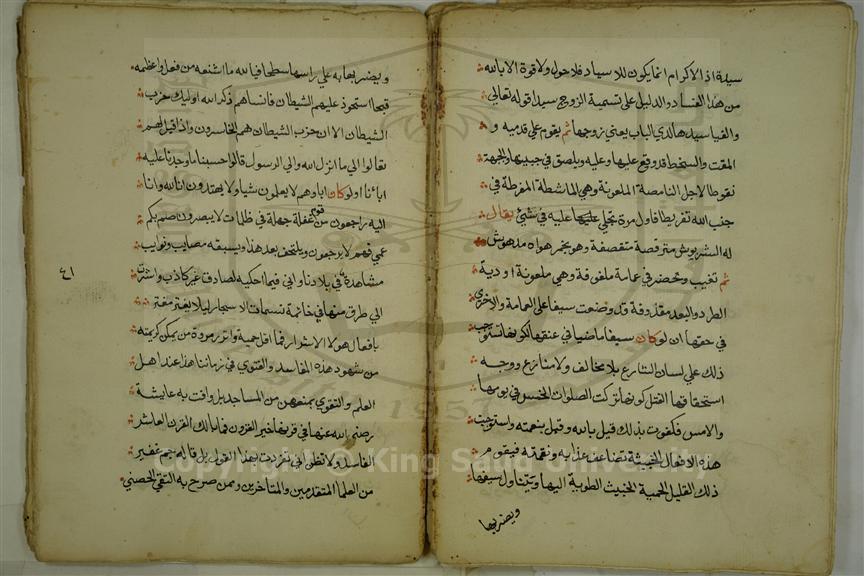 سيدة اذ الاكرام انما يكون للاسياد فلا حول ولا قوة الا بالله
من هذا الفساد والدليل على تسمية الزوج سيدا قوله تعالي
والفيا سيدها لدي الباب يعني زوجها ثم يقوم علي قدميه و
المقت والسخط قد وقع عليها وعليه ويلصق في جبينها والجبهة
نقوطا لاجل النامصة الملعونة وهي الماشطة المفرطة في
جنب الله تفريطا فاول مرة تجلي عليه في شئ يقال
له الشربوش مترقصة متقصفة وهو بخمر هواه مدهوش
ثم تغيب وتحضر في عمامة ملفوفة وهي ملعونة اودية
الطرد والبعد مقذوفة قد وضعت سيفا على العمامة والاخرى
في حقها ان لو كان سيفا ماضيا في عنقها لكونها تستوجب
ذلك علي لسان الشارع بلا مخالف ولا منازع ووجه
استحقاقها القتل كونها تركت الصلوات الخمس في يومها
والامس فكفرت بذلك قيل بالله وقيل بنعمته واستوجبت
هذه الافعال الخبيثة تضاعف عذابه ونقمته فيقوم
ذلك القليل الحمية الخبيث الطوية اليها ويتناول سيفها
ويضربها
ويضربها به علي راسها سطحا فيا لله ما اشنعه من فعل واعظمه
قبحا استحوذ عليهم الشيطان فانساهم ذكر الله اوليك حزب
الشيطان الا ان حزب الشيطان هم الخاسرون واذا قيل لهم
تعالوا الي ما انزل الله والي الرسول قالوا حسبنا ما وجدنا عليه
ابائنا اولو كان اباوهم لا يعلمون شيا ولا يهتدون انا لله وانا
اليه راجعون من قوم غفلة جهلة في ظلمات لا يبصرون صم بكم
عمي فهم لا يرجعون ويلتحق بعد هذا ويسبقه مصايب ونوايب
مشاهدة في بلادنا واني فيما احكيه لصادق غير كاذب واشرت
٤١
الي طرق منها في خاتمة نسمات الاسحار ليلا يغتر مغتر
بافعال هولا الاشرار فما اقل حمية واتزر مروة من يمكن كريمته
من شهود هذه المفاسد والفتوي في زماننا هذا عند اهل
العلم والتقوي بمنعهن من المساجد بل وافت به عايشة
رضي الله عنها في قرنها خير القرون فما بالك القرن العاشر
الفاسد ولا تظن اني تفردت بهذا القول بل قاله جم غفير
من العلما المتقدمين والمتاخرين وممن صرح به التقي الحصني
Copyright © King Saud University
195